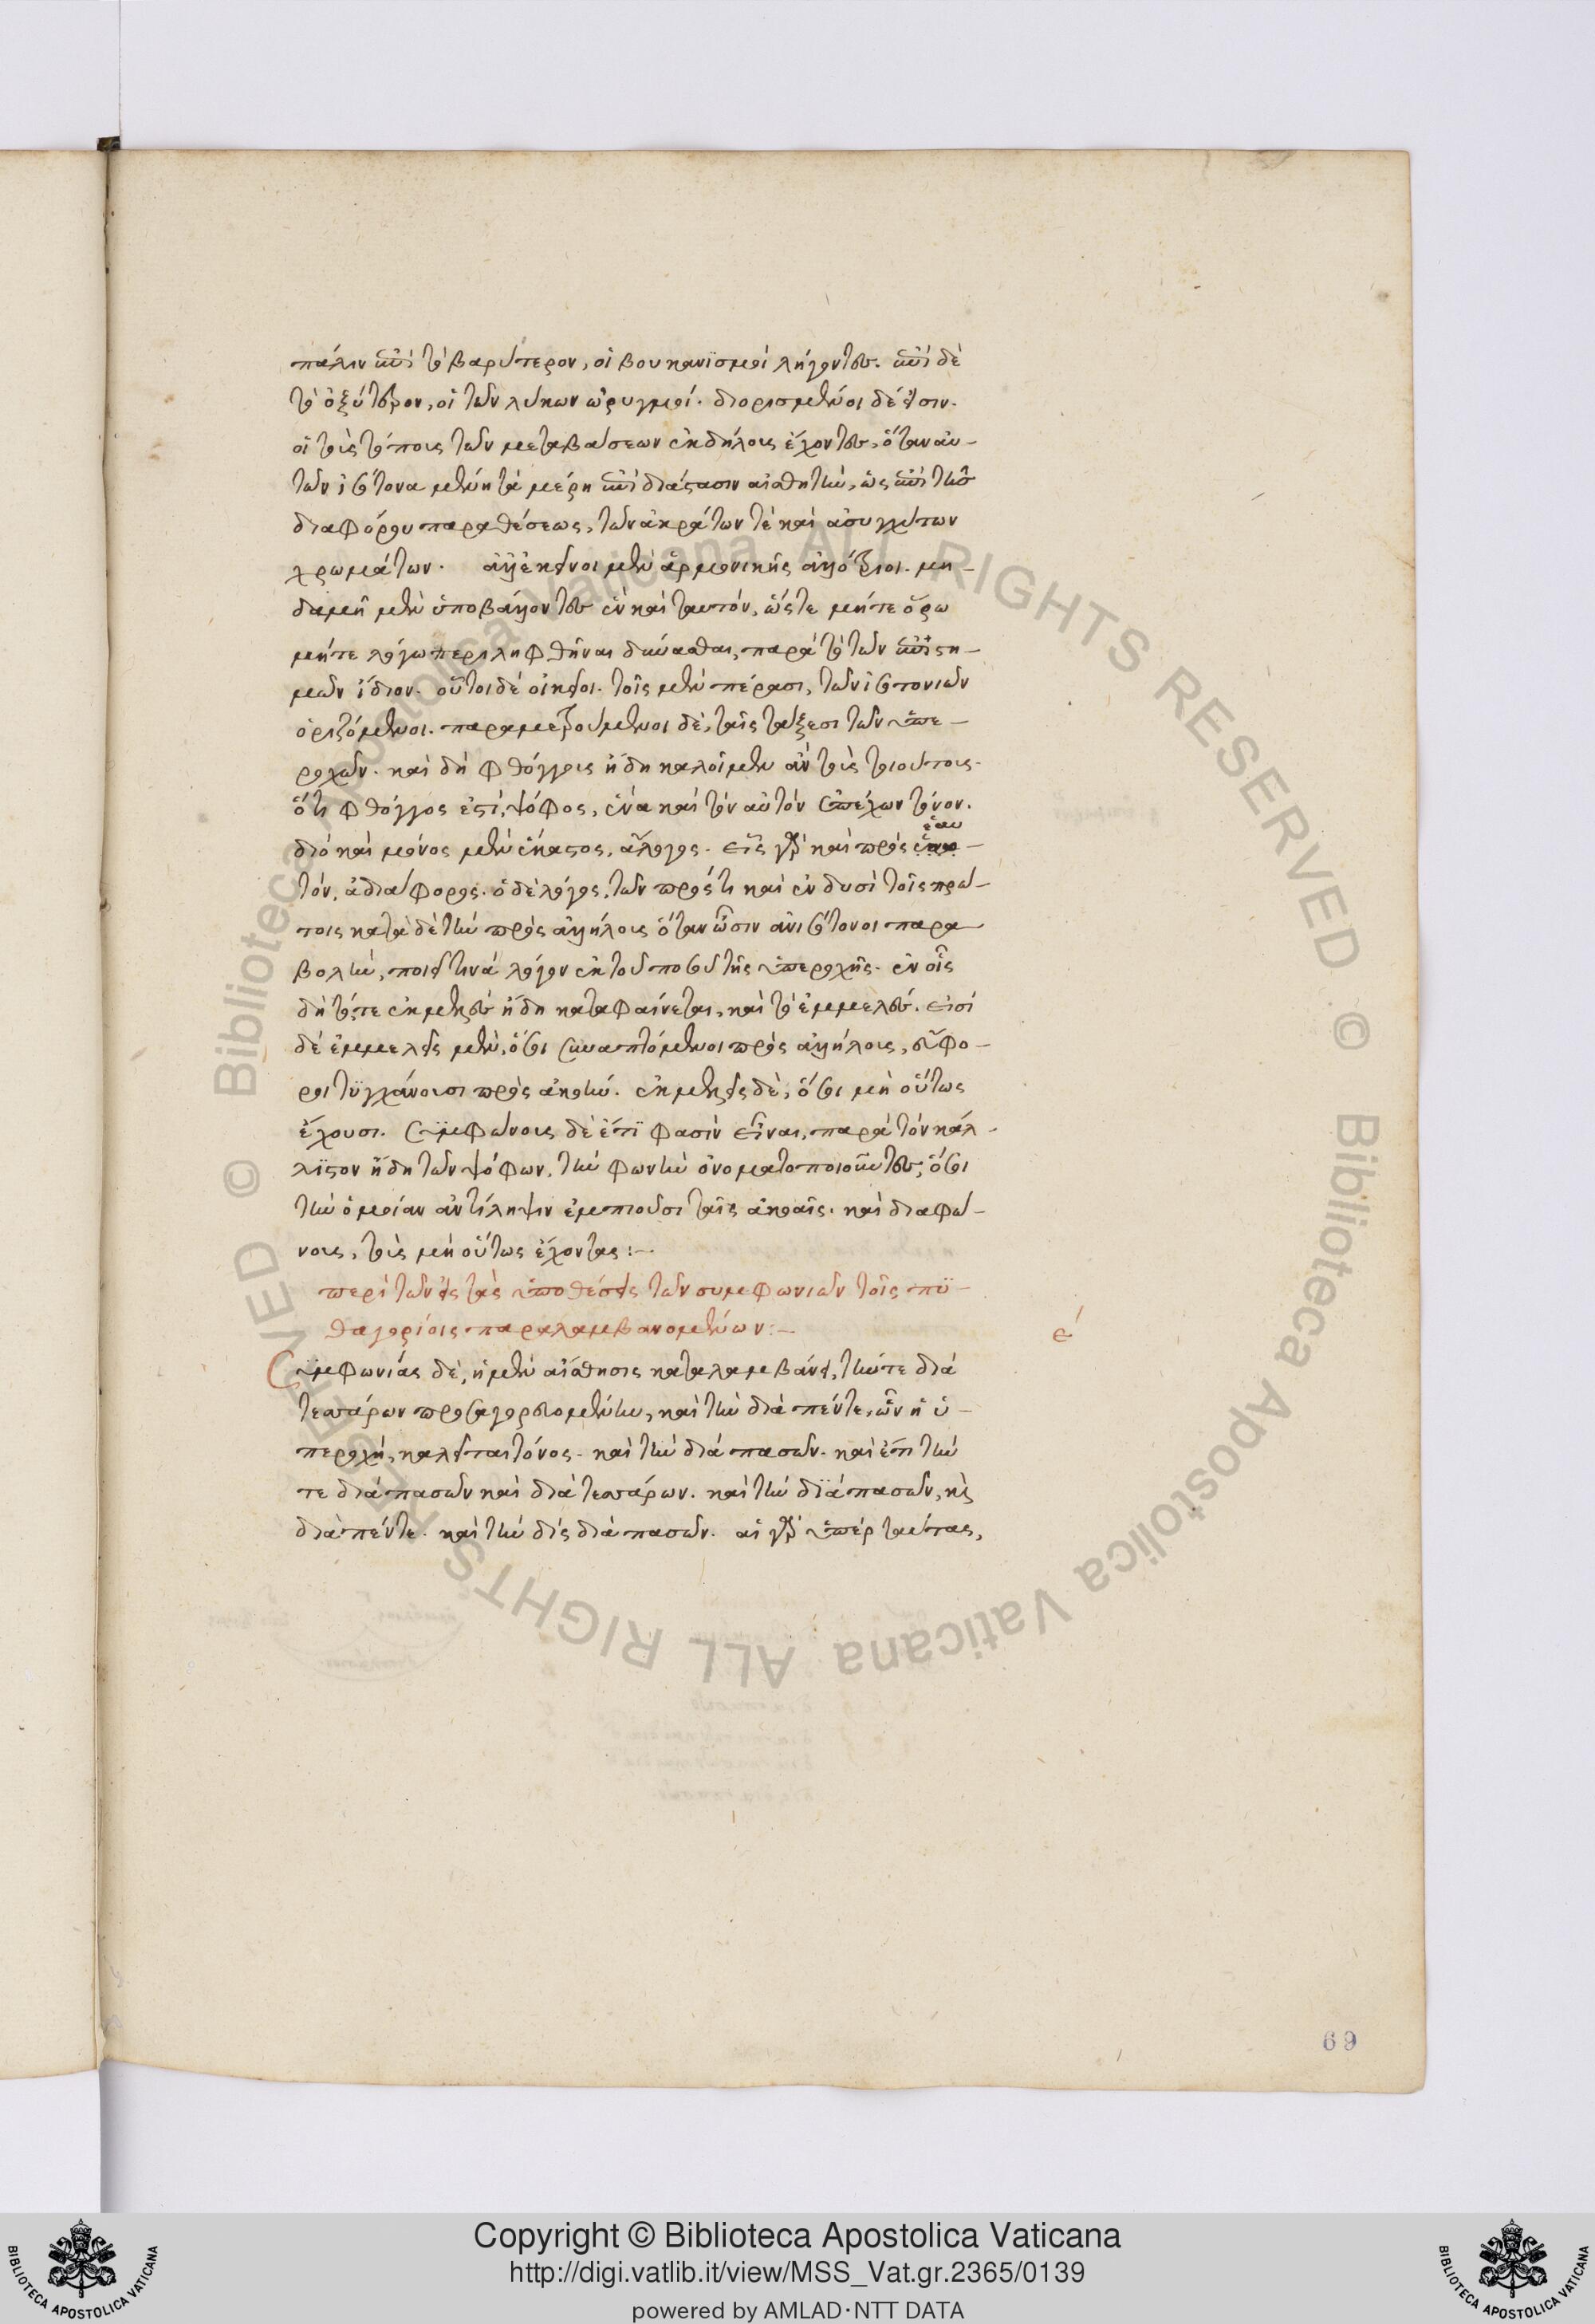 πάλιν ἐπὶ τὸ βαρύτερον, οἱ βουκανϊσμοὶ λήγοντες. ἐπὶ δὲ
τὸ ὀξύτερον, οἱ τῶν λύκων ὠρυγμοί. διορισμένοι δέ εἰσιν.
οἱ τοὺς τόπους τῶν μεταβάσεων ἐκδήλους ἔχοντες, ὅταν αὐ-
τῶν ἰσότονα μένη τὰ μέρη ἐπὶ διάστασιν αἰσθητὴν, ὡς ἐπὶ τῆς
διαφόρου παραθέσεως, τῶν ἀκράτων τὲ καὶ ἀσυγχύτων
χρωμάτων. ἀλλ' ἐκεῖνοι μὲν ἁρμονικῆς ἀλλότριοι. μη-
δαμῆ μὲν ὑποβάλλοντες ἓν καὶ ταυτόν, ὥστε μήτε ὅρω
μήτε λόγω περιληφθῆναι δύνασθαι, παρὰ τὸ τῶν ἐπιστη-
μῶν ἴδιον. οὗτοι δὲ οἰκεῖοι. τοῖς μὲν πέρασι, τῶν ἰσοτονιῶν
ὁριζόμενοι. παραμετρούμενοι δὲ, ταῖς τάξεσι τῶν ὑπε-
ροχῶν. καὶ δὴ φθόγγους ἤδη καλοῖμεν ἂν τοὺς τοιούτους.
ὅτι φθόγγος ἐστὶ, ψόφος, ἕνα καὶ τὸν αὐτὸν ἐπέχων τόνον.
διὸ καὶ μόνος μὲν ἕκαστος, ἄλογος. εἷς γὰρ καὶ πρὸς ἑαυ-
τόν, ἀδιάφορος. ὁ δὲ λόγος, τῶν πρός τι καὶ ἐν δυσὶ τοῖς πρώ-
τοις κατὰ δὲ τὴν πρὸς ἀλλήλους ὅταν ὦσιν ἀνισότονοι παρα
βολὴν, ποιεῖ τινὰ λόγον ἐκ τοῦ ποσοῦ τῆς ὑπεροχῆς. ἐν οἷς
δὴ τό, τε ἐκμελὲς ἤδη καταφαίνεται, καὶ τὸ ἐμμελές. εἰσὶ
δὲ ἐμμελεῖς μὲν, ὅσοι συναπτόμενοι πρὸς ἀλλήλους, εὔφο-
ροι τϋγχάνουσι πρὸς ἀκοήν. ἐκμελεῖς δὲ, ὅσοι μὴ οὕτως
ἔχουσι. Συμφώνους δὲ ἔτϊ φασὶν εἶναι, παρὰ τὸν κάλ-
λϊστον ἤδη τῶν ψόφων, τὴν φωνὴν ὀνοματοποιοῦντες, ὅσοι
τὴν ὁμοίαν ἀντίληψιν ἐμποιοῦσι ταῖς ἀκοαῖς. καὶ διαφώ-
νους, τοὺς μὴ οὕτως ἔχοντας:-
περὶ τῶν εἰς τὰς ὑποθέσεις τῶν συμφωνιῶν τοῖς πϋ-
θαγορίοις παραλαμβανομένων:-
ε´
Συμφωνίας δὲ, ἡ μὲν αἴσθησις καταλαμβάνει, τήν τε διὰ
τεσσάρων προσαγορευομένην, καὶ τὴν διὰ πέντε, ὧν ἡ ὑ-
περοχὴ, καλεῖται τόνος. καὶ τὴν διὰ πασῶν. καὶ ἔτι τήν
τε διὰ πασῶν καὶ διὰ τεσσάρων. καὶ τὴν δϊὰ πασῶν, κὶ
διὰ πέντε. καὶ τὴν δὶς διὰ πασῶν. αἱ γὰρ ὑπὲρ ταύτας,
69
Copyright © Biblioteca Apostolica Vaticana
http://digi.vatlib.it/view/MSS_Vat.gr.2365/0139
powered by AMLAD·NTT DATA
BIBLIOTECA APOSTOLICA VATICANA
BIBLIOTECA APOSTOLICA VATICANA
© Biblioteca Apostolica Vaticana ALL RIGHTS RESERVED
© Biblioteca Apostolica Vaticana ALL RIGHTS RESERVED